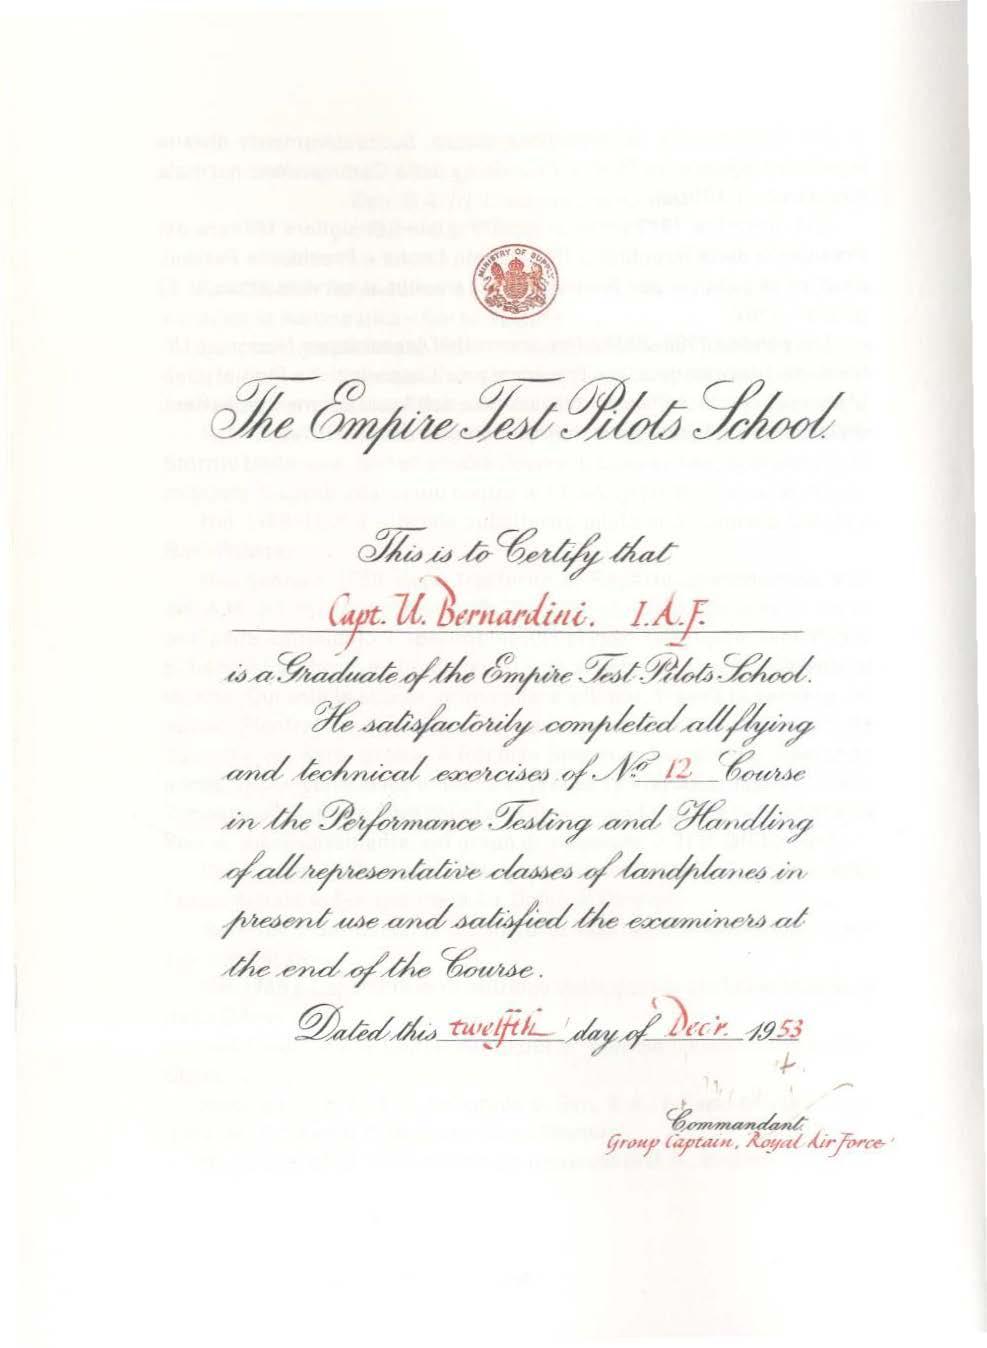 MINISTRY OF SUPPLY
The Empire Test Pilots School.
This is to Certify that
Capt. U. Bernardini. I.A.F.
is a Graduate of the Empire Test Pilots School.
He satisfactorily completed all flying
and technical exercises of No. 12 Course
in the Performance Testing and Handling
of all representative classes of landplanes in
present use and satisfied the examiners at
the end of the Course.
Dated this twelfth day of Dec'r. 1953
Commandant.
Group Captain, Royal Air Force